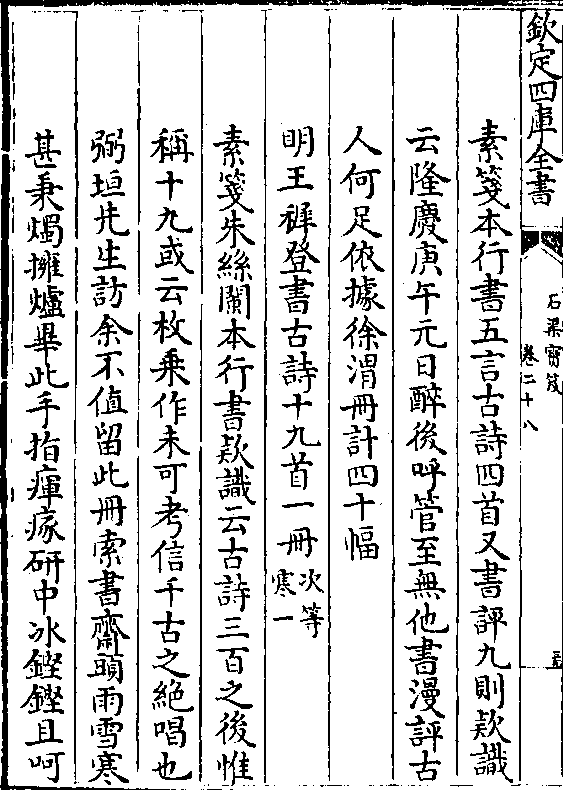 欽定四庫全書
石渠寶笈
卷二十八
素箋本行書五言古詩四首又書評九則欵識
云隆慶庚午元日醉後呼管至無他書漫評古
人何足依據徐渭冊計四十幅
明王穉登書古詩十九首一冊次等
寒一
素箋朱絲闌本行書欵識云古詩三百之後惟
稱十九或云枚乗作未可考信千古之絶唱也
弼垣先生訪余不值留此冊索書齋頭雨雪寒
甚秉燭擁爐畢此手指瘇瘃研中冰鏗鏗且呵